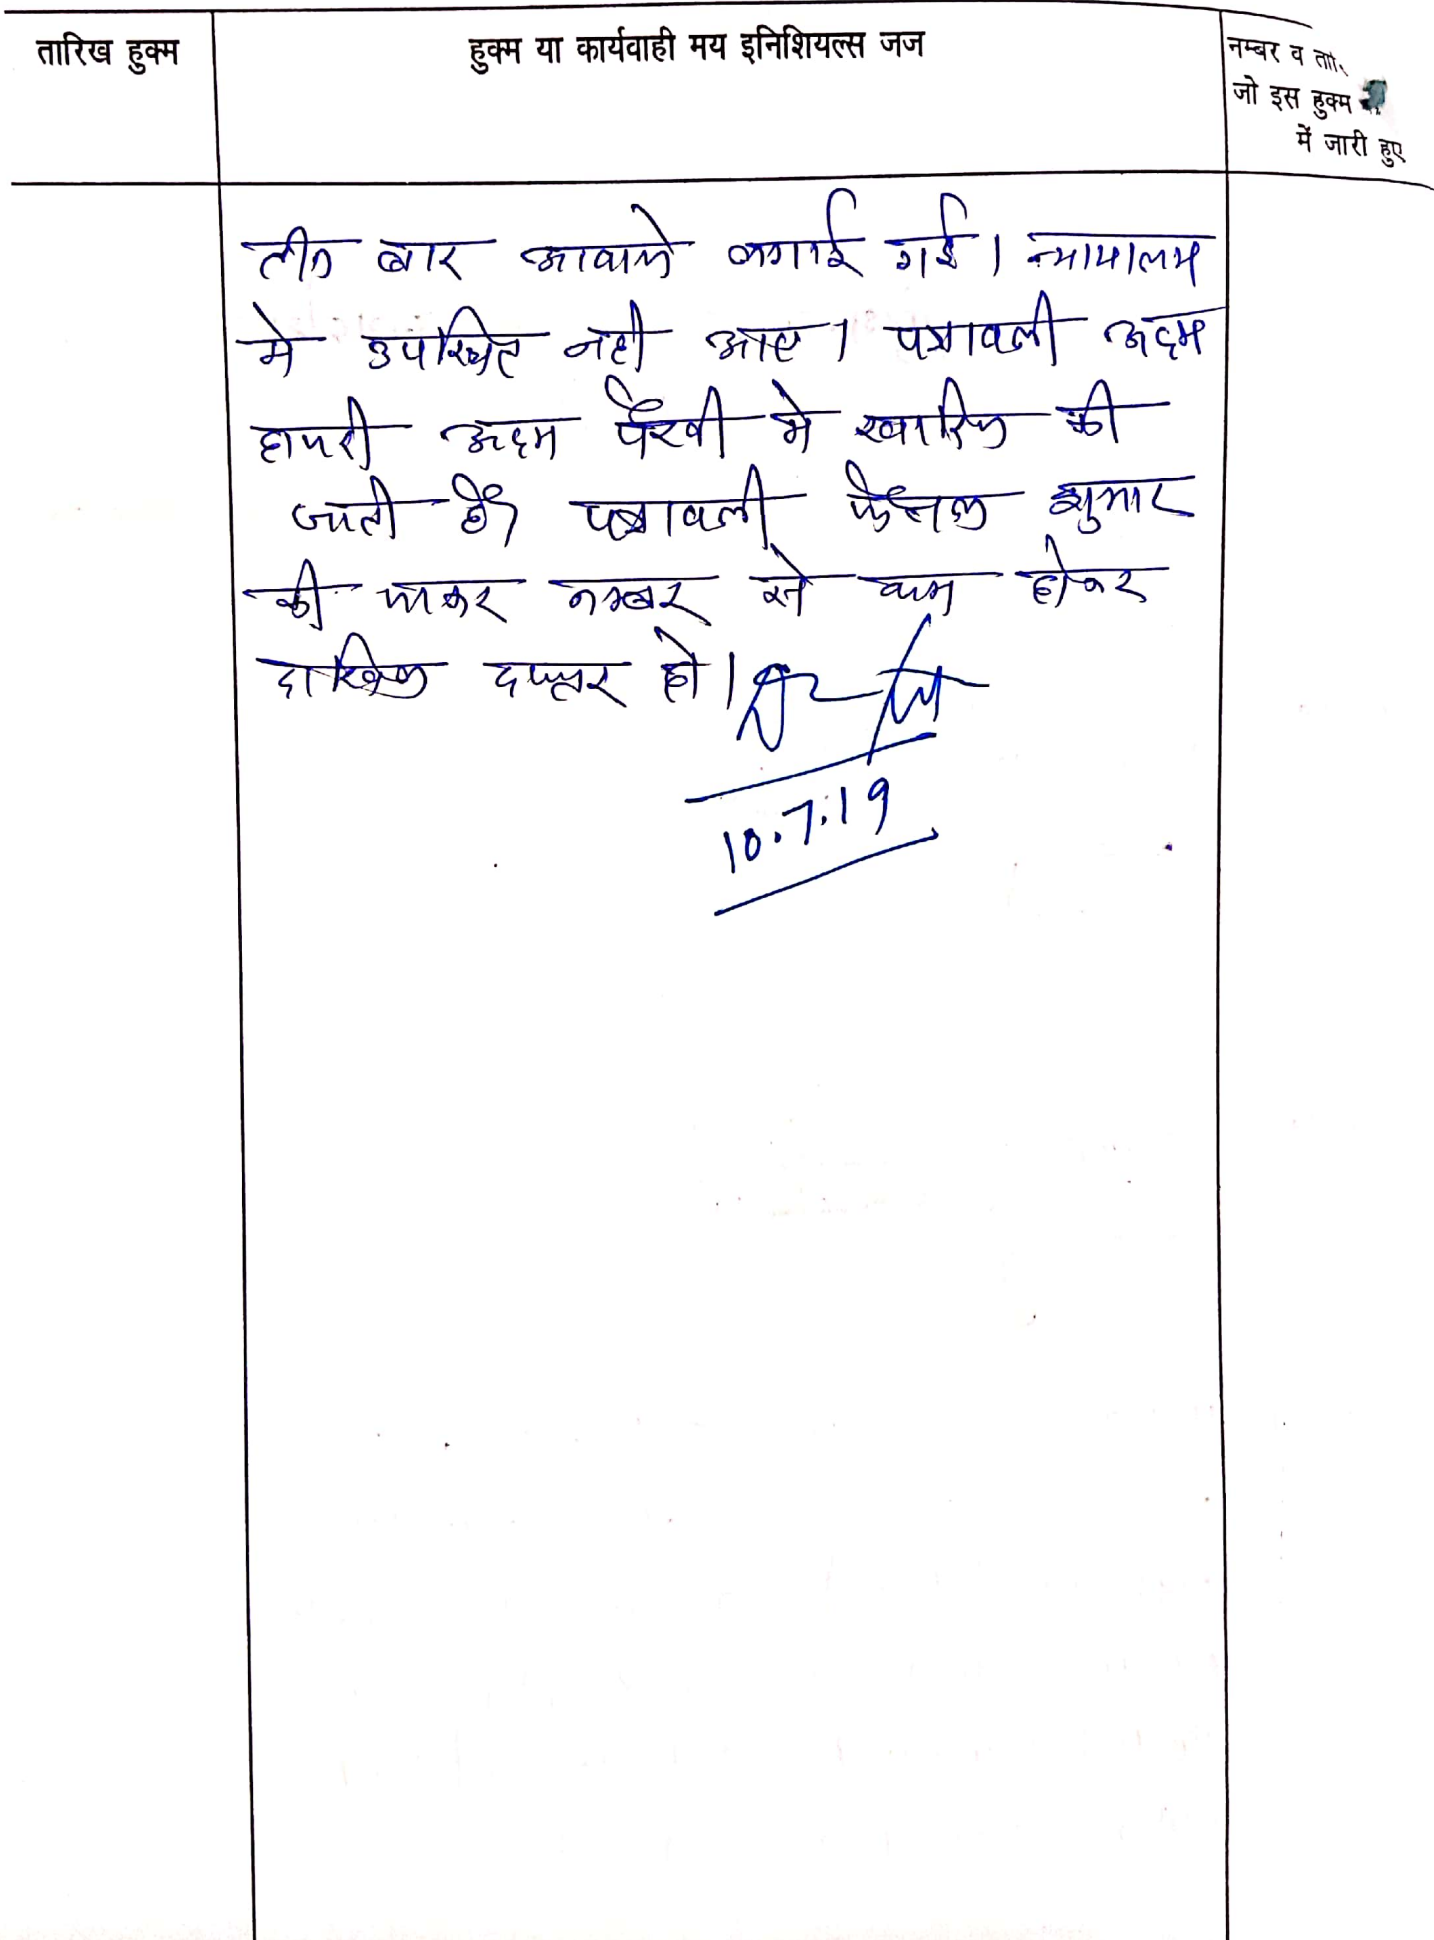 तारिख हुक्म
हुक्म या कार्यवाही मय इनिशियल्स जज
नम्बर व
जो इस हुक्म
में जारी हुए
तीन बार आवाजे लगाई गई। न्यायालय
मे उपस्थित नही आए। पत्रावली अदम
हाजरी अदम पैरवी मे खारिज की
जाती है। पत्रावली फैसल शुमार
की जाकर नम्बर से कम होकर
दाखिल दफ्तर हो।
10.7.19